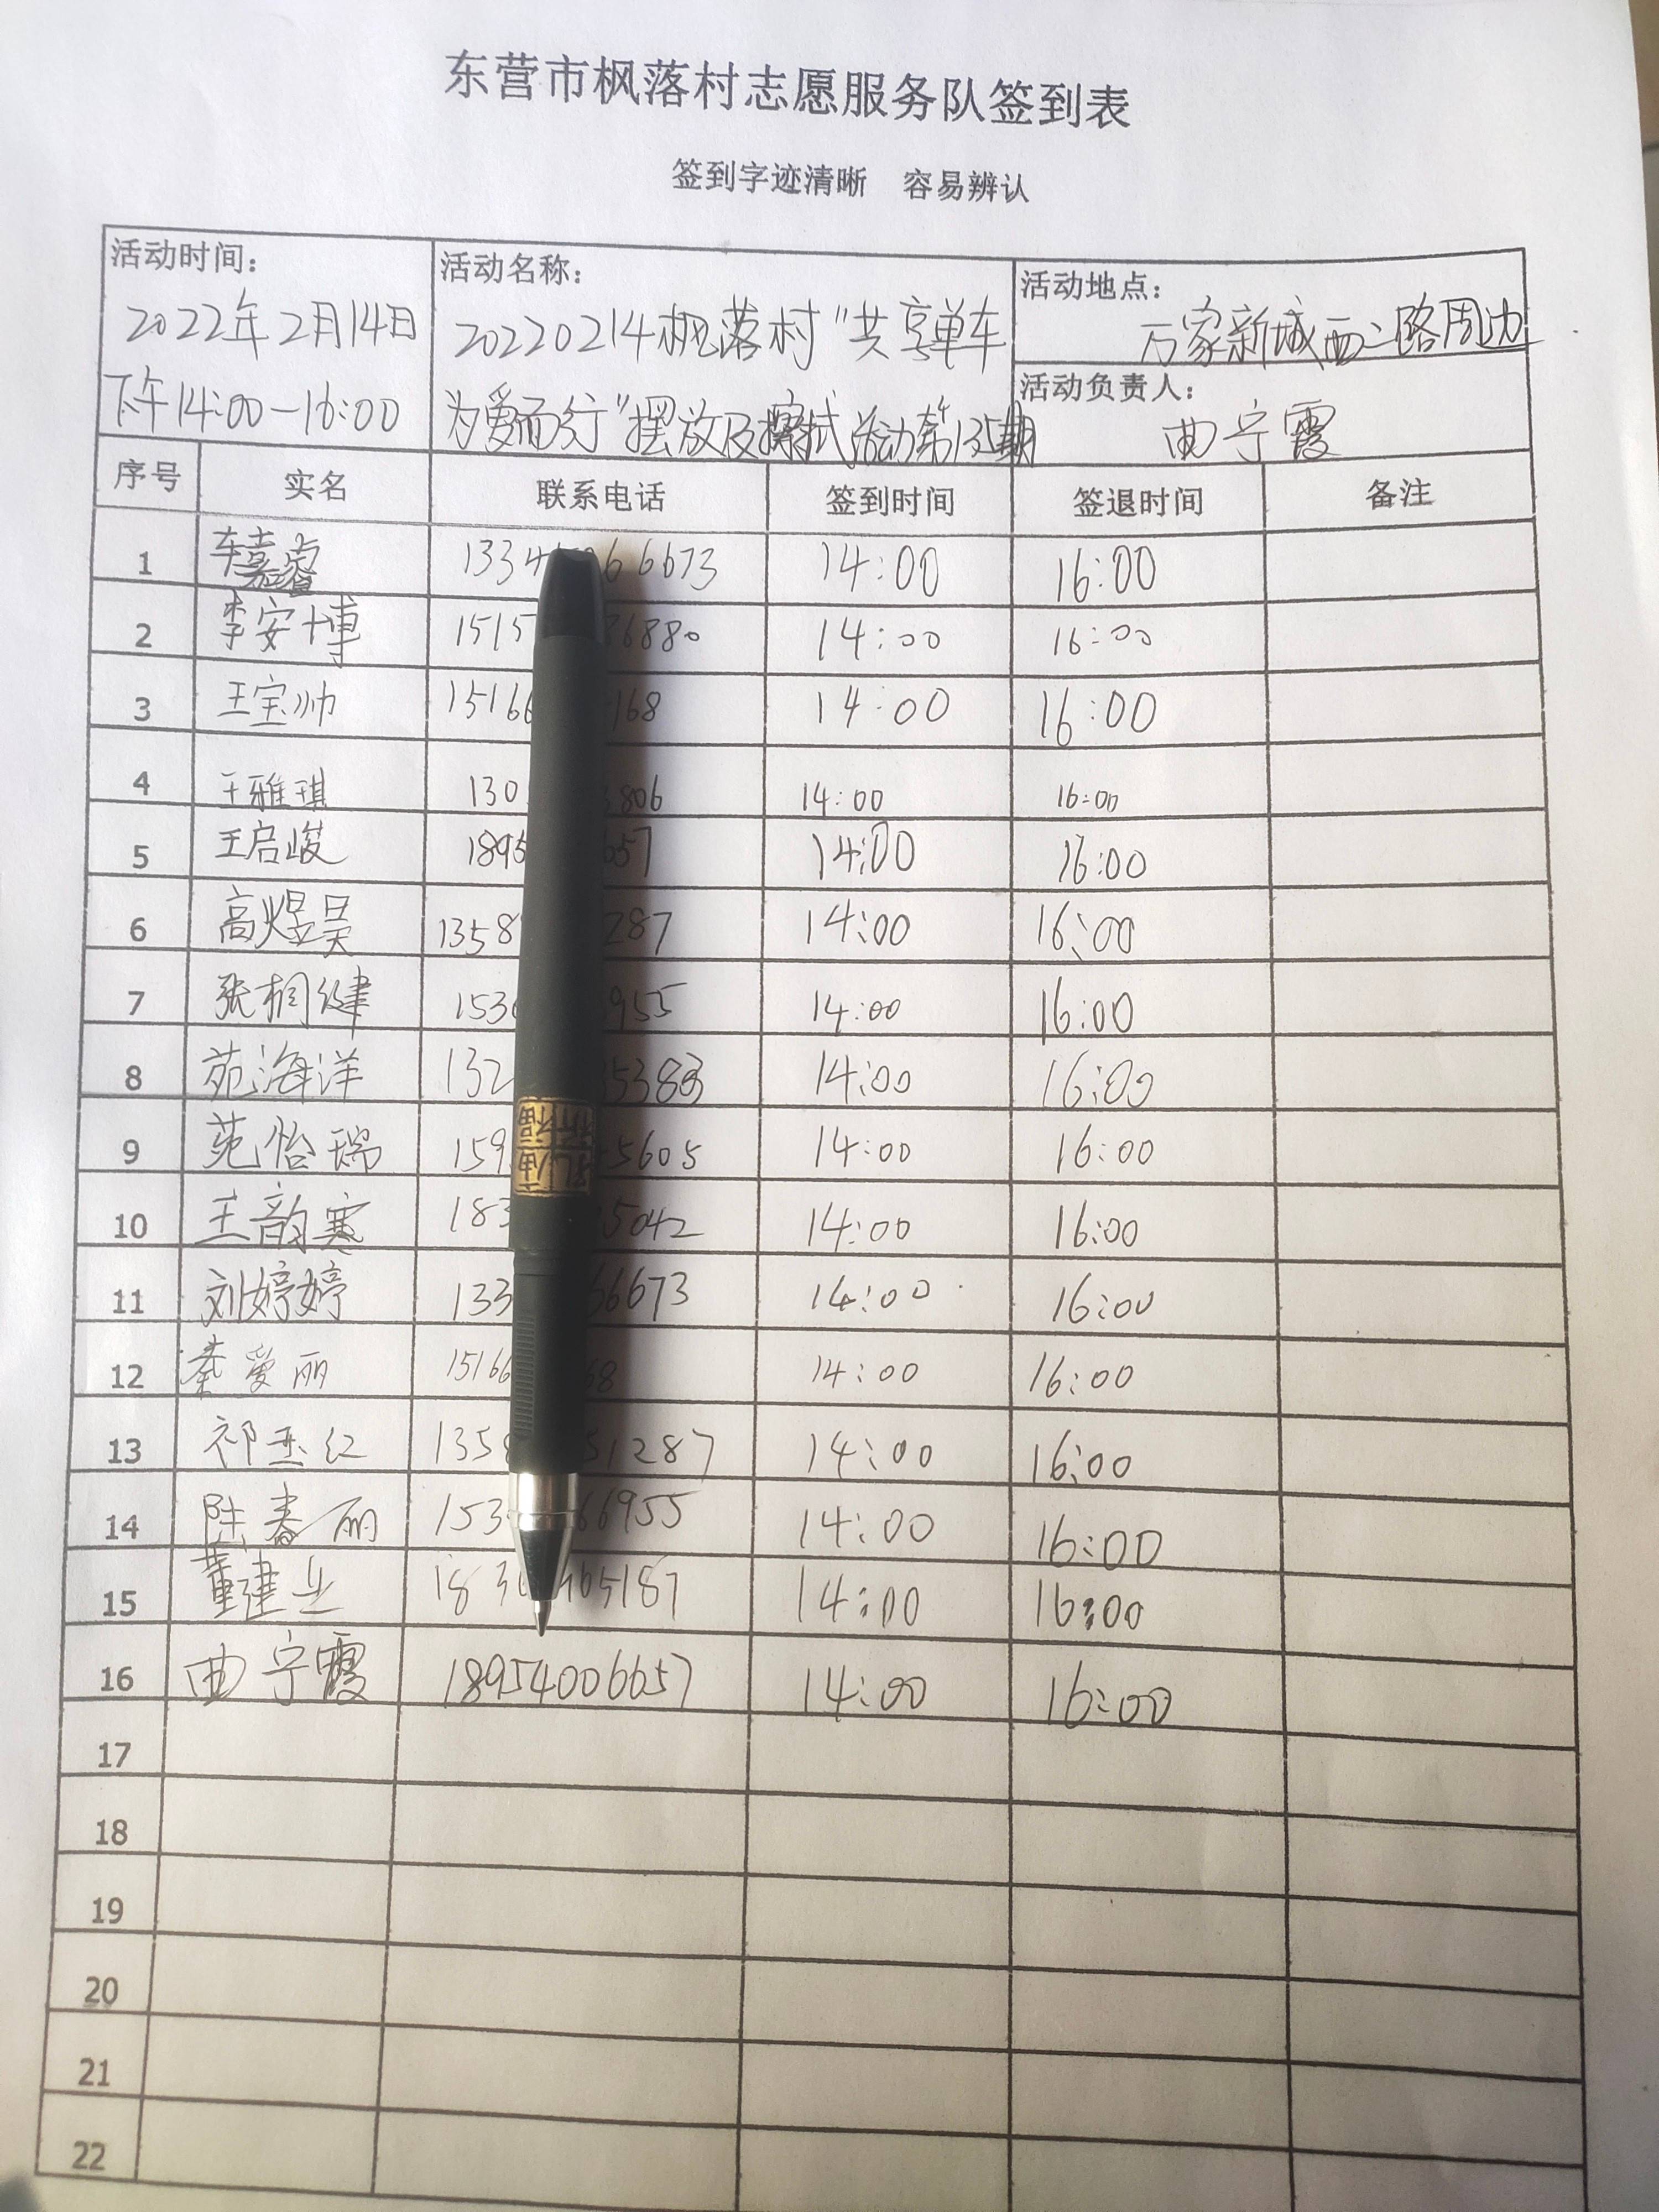 东营市枫落村志愿服务队签到表
签到字迹清晰 容易辨认
活动时间:
2022年2月14日
下午14:00-16:00
活动名称:
20220214枫落村"共享单车
为爱而行"摆放及擦拭活动第135期
活动地点:
万家新城西二路周边
活动负责人:
曲宁霞
序号 实名 联系电话 签到时间 签退时间 备注
1 车嘉睿 1334 66673 14:00 16:00
2 李安博 1515 6880 14:00 16:00
3 王宝帅 15166 168 14:00 16:00
4 王雅琪 130 806 14:00 16:00
5 王启峻 1895 657 14:00 16:00
6 高煜昊 1358 287 14:00 16:00
7 张桐健 153 955 14:00 16:00
8 苑海洋 132 5383 14:00 16:00
9 苑怡瑞 159 5605 14:00 16:00
10 王韵寒 183 5042 14:00 16:00
11 刘婷婷 133 66673 14:00 16:00
12 秦爱丽 15166 68 14:00 16:00
13 祁玉红 135 51287 14:00 16:00
14 陈春丽 153 66955 14:00 16:00
15 董建业 183 65187 14:00 16:00
16 曲宁霞 18954006657 14:00 16:00
17
18
19
20
21
22
祈福
孔庙